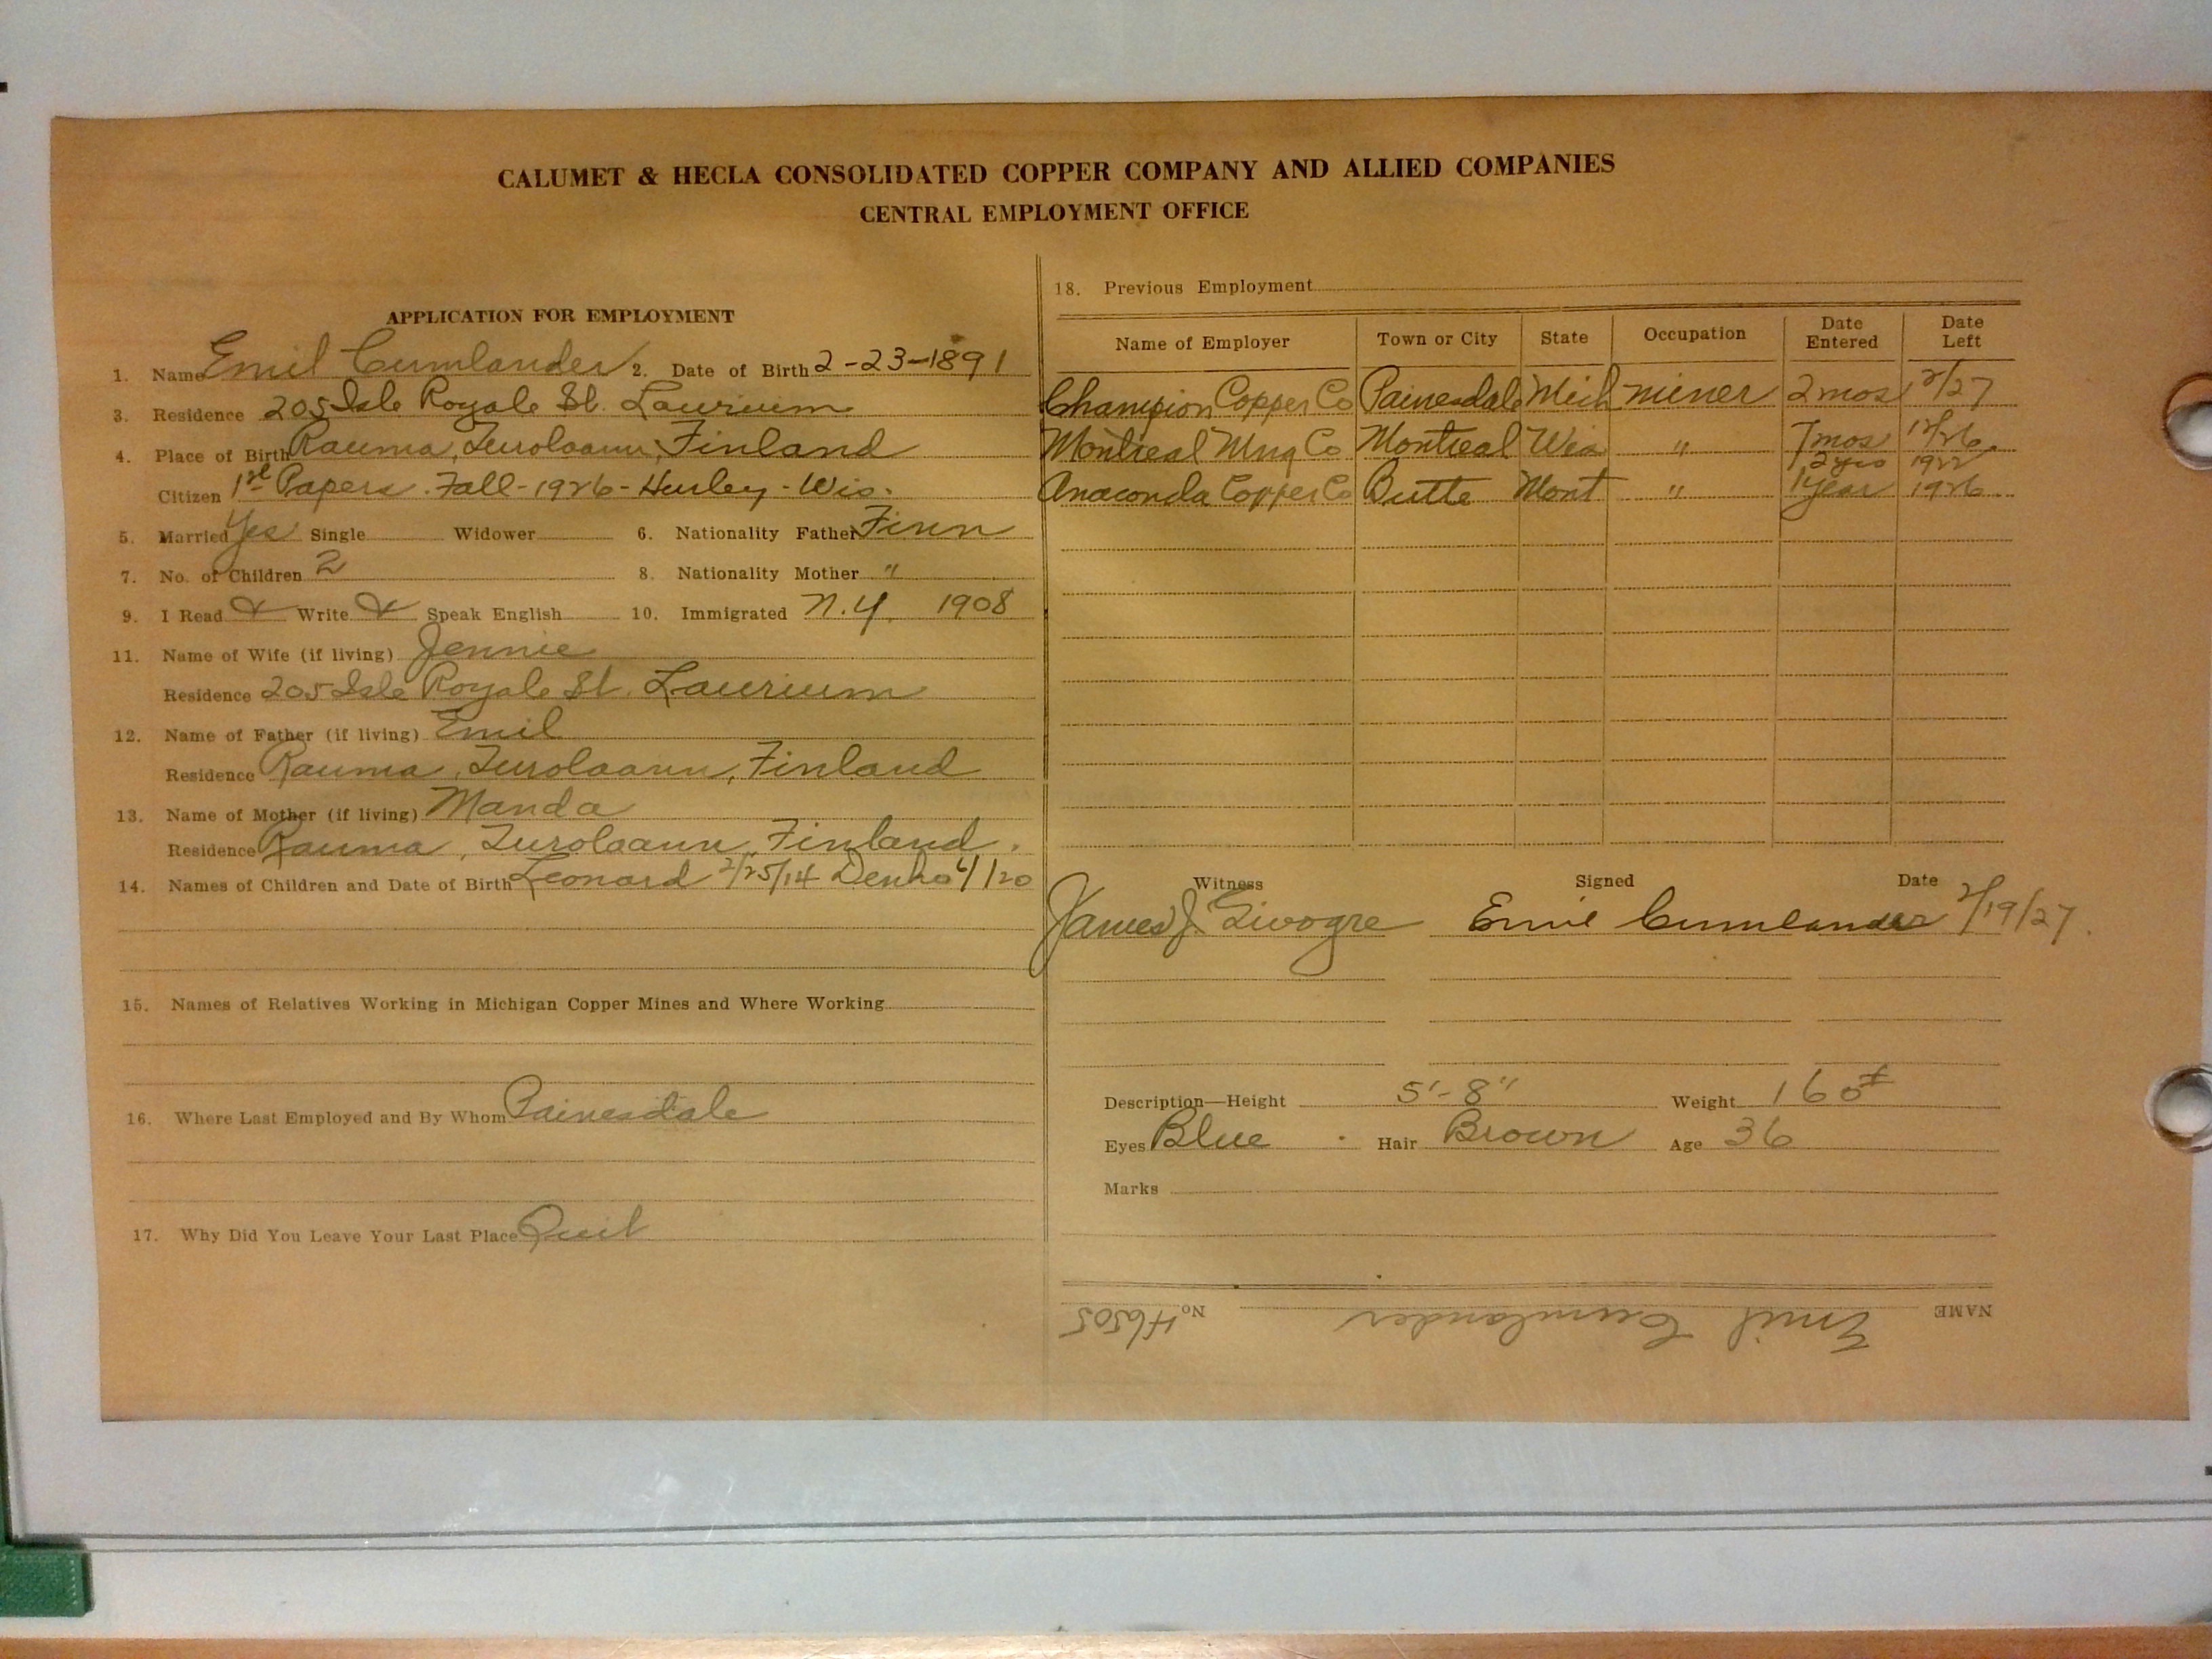 CALUMET & HECLA CONSOLIDATED COPPER COMPANY AND ALLIED COMPANIES
CENTRAL EMPLOYMENT OFFICE
APPLICATION FOR EMPLOYMENT
1. Name Emil Cumlander 2. Date of Birth 2-23-1891
3. Residence 205 Isle Royale St. Laurium
4. Place of Birth Rauma, Turolaann, Finland
Citizen 1st Papers. Fall-1926-Hurley-Wis.
5. Married Yes Single Widower 6. Nationality Father Finn
7. No. of Children 2 8. Nationality Mother "
9. I Read Write Speak English 10. Immigrated N.Y. 1908
11. Name of Wife (if living) Jennie
Residence 205 Isle Royale St. Laurium
12. Name of Father (if living) Emil
Residence Rauma, Turolaann, Finland
13. Name of Mother (if living) Manda
Residence Rauma, Turolaann, Finland.
14. Names of Children and Date of Birth Leonard 2/25/14
15. Names of Relatives Working in Michigan Copper Mines and Where Working
16. Where Last Employed and By Whom Painesdale
17. Why Did You Leave Your Last Place Quit
18. Previous Employment
Name of Employer Town or City State Occupation Date Entered Date Left
Champion Copper Co Painesdale Mich miner 2 mos 2/27
Montreal Mng Co Montreal Wis " 7 mos 12/26
2 yrs 1922
Anaconda Copper Co Butte Mont " 1 year 1926
Witness Signed Date
James J. Emil Cumlander 2/19/27.
Description—Height 5'-8" Weight 160±
Eyes Blue Hair Brown Age 36
Marks
NAME Emil Cumlander No. H6505